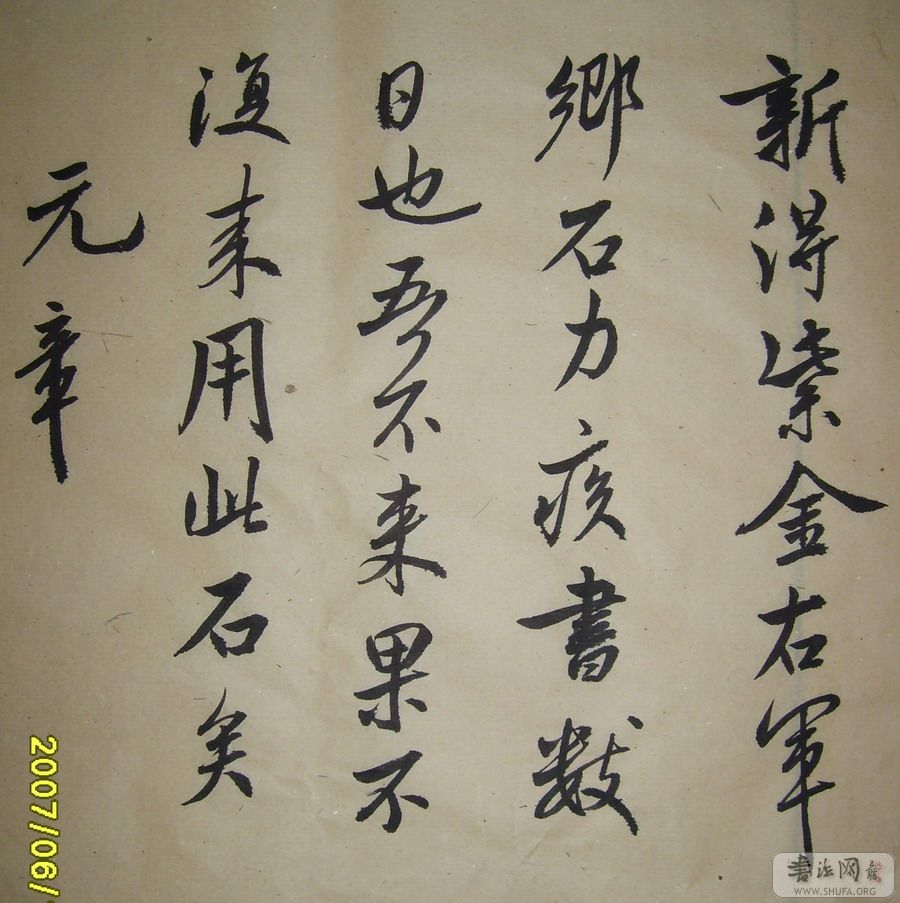 新得紫金右軍
鄉石力疾書數
日也吾不来果不
復来用此石矣
元章
2007/06/
書法网
WWW.SHUFA.ORG